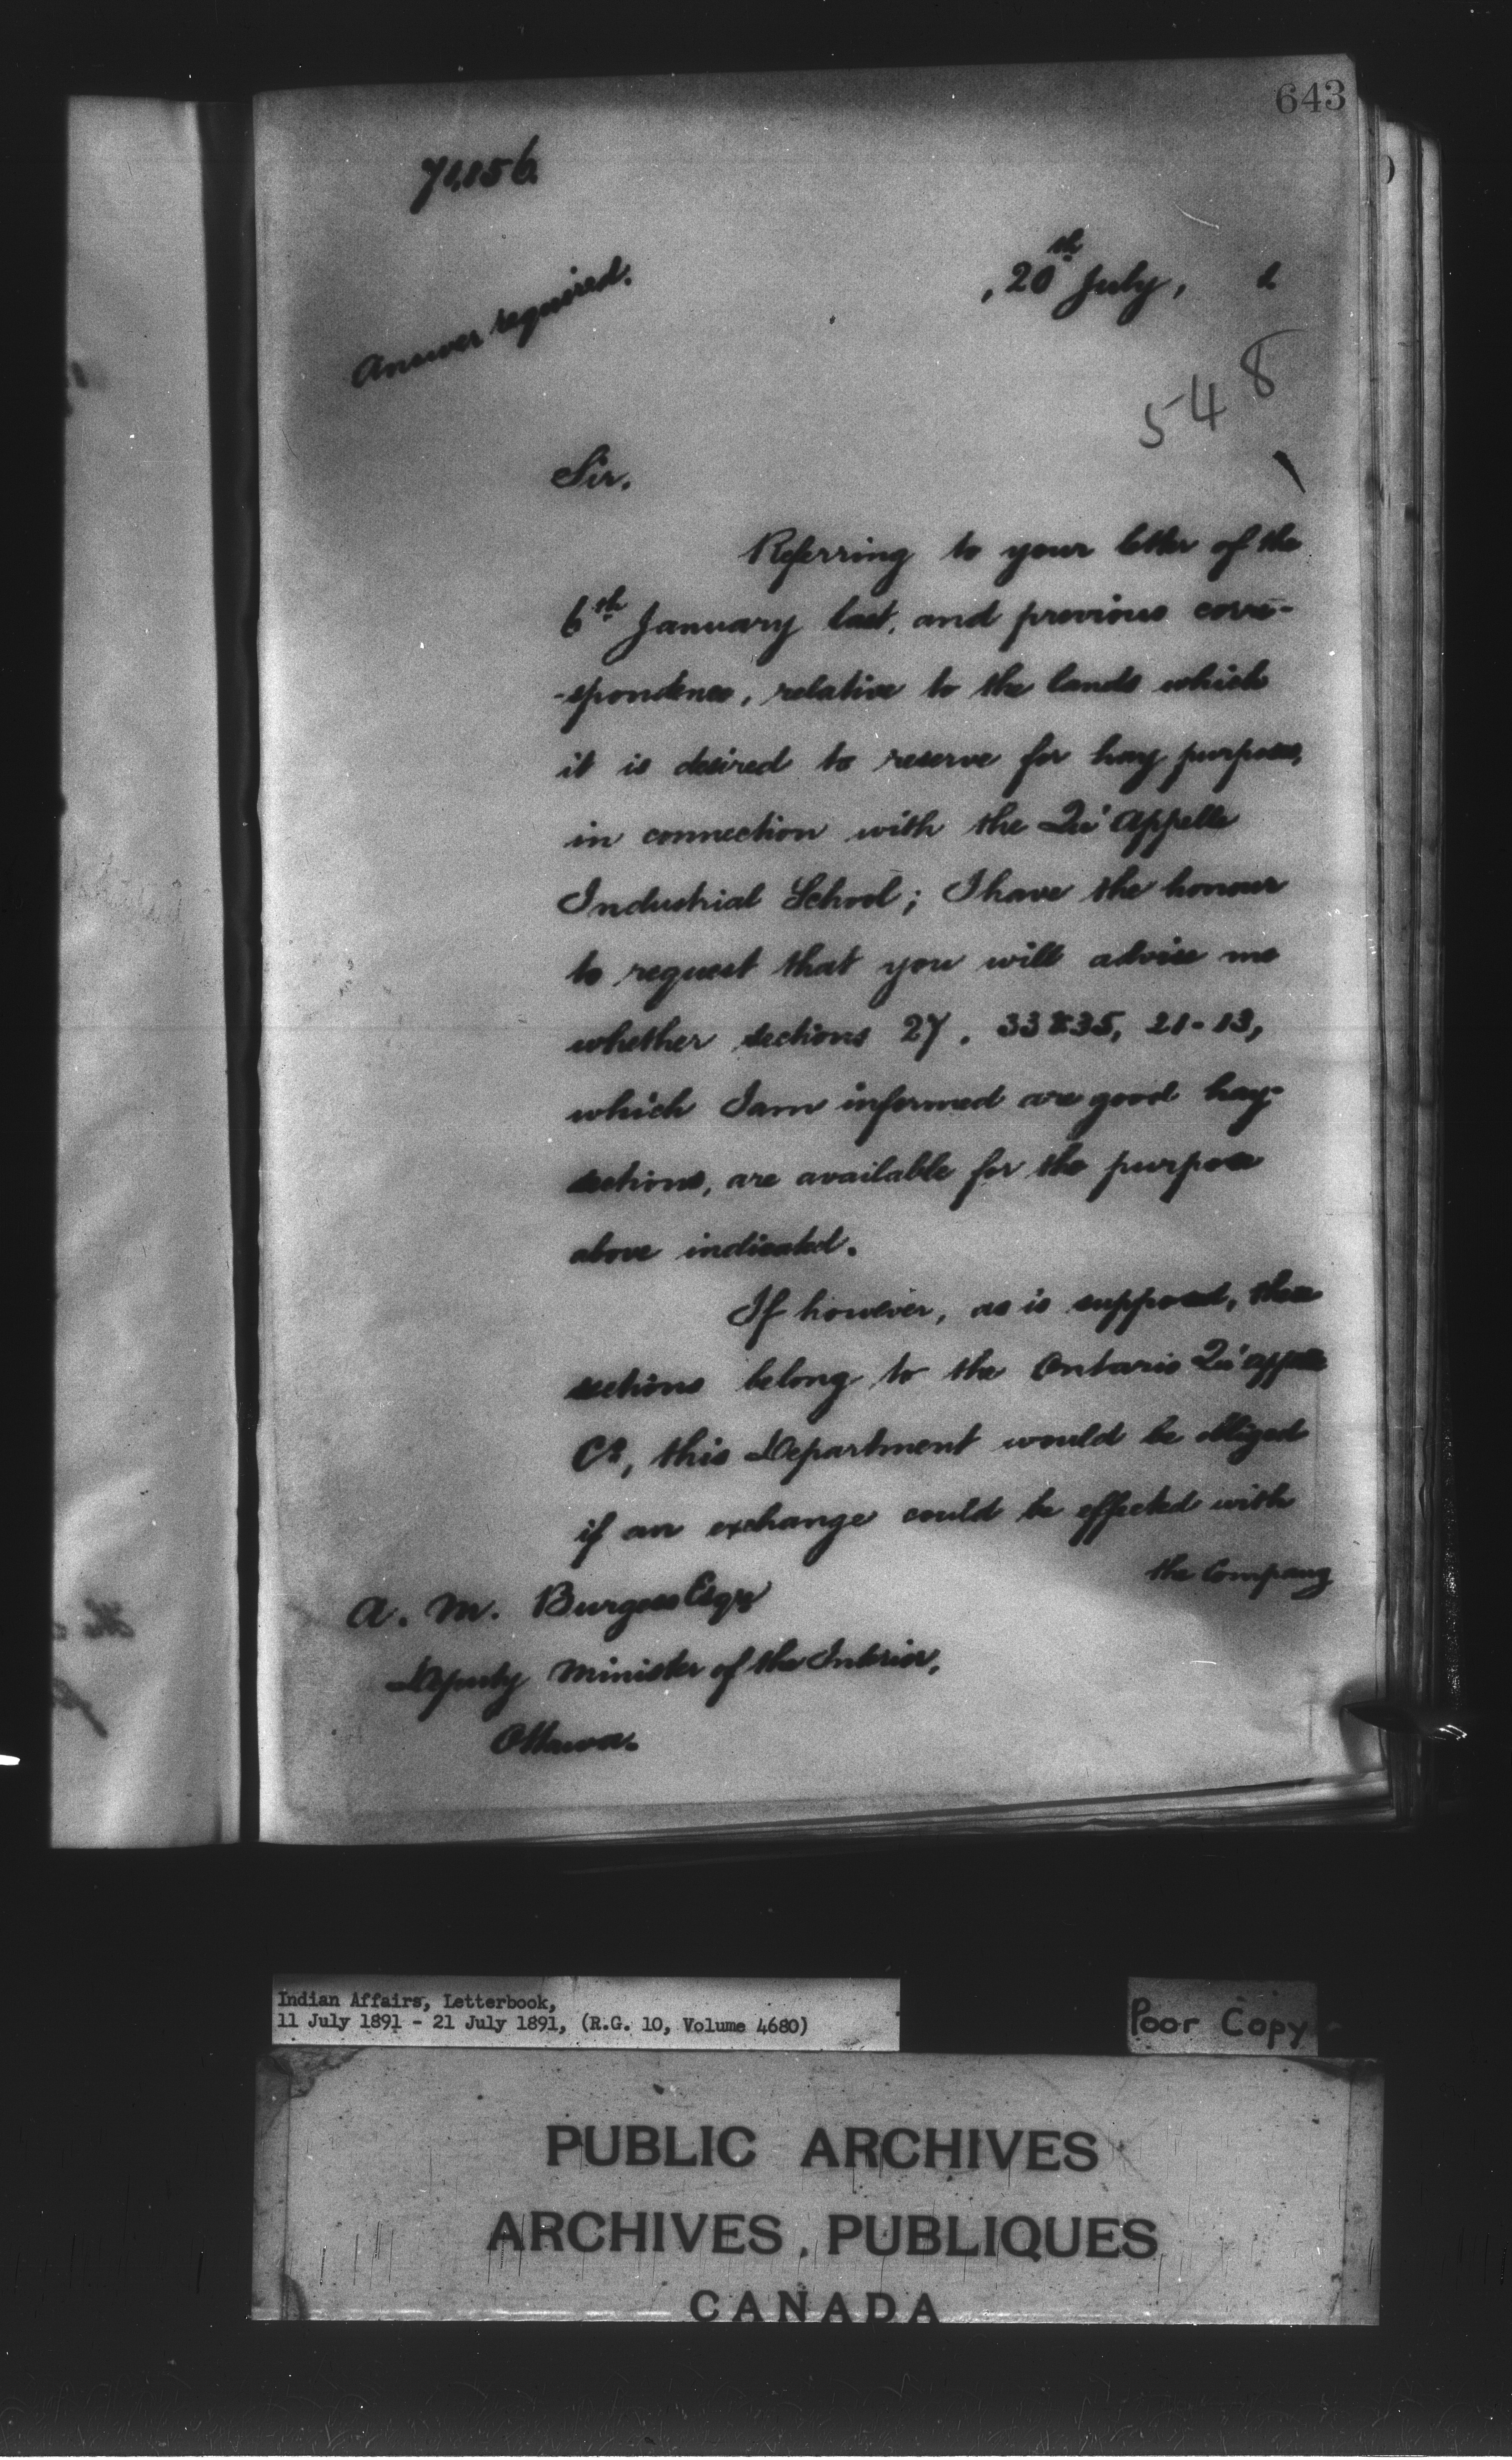 643
71,156.
Answer required.
, 20th July, 1
548
Sir.
Referring to your letter of the
6th January last, and previous corre-
-spondence, relative to the lands which
it is desired to reserve for hay purposes,
in connection with the Qu'Appelle
Industrial School; I have the honour
to request that you will advise me
whether sections 27, 33 & 35, 21-13,
which I am informed are good hay-
sections, are available for the purpose
above indicated.
If however, as is supposed, these
sections belong to the Ontario Qu'appelle
Co, this Department would be obliged
if an exchange could be effected with
the Company
A. M. Burgess Esqre
Deputy Minister of the Interior,
Ottawa.
Indian Affairs, Letterbook,
11 July 1891 - 21 July 1891, (R.G. 10, Volume 4680)
Poor Copy
PUBLIC ARCHIVES
ARCHIVES PUBLIQUES
CANADA